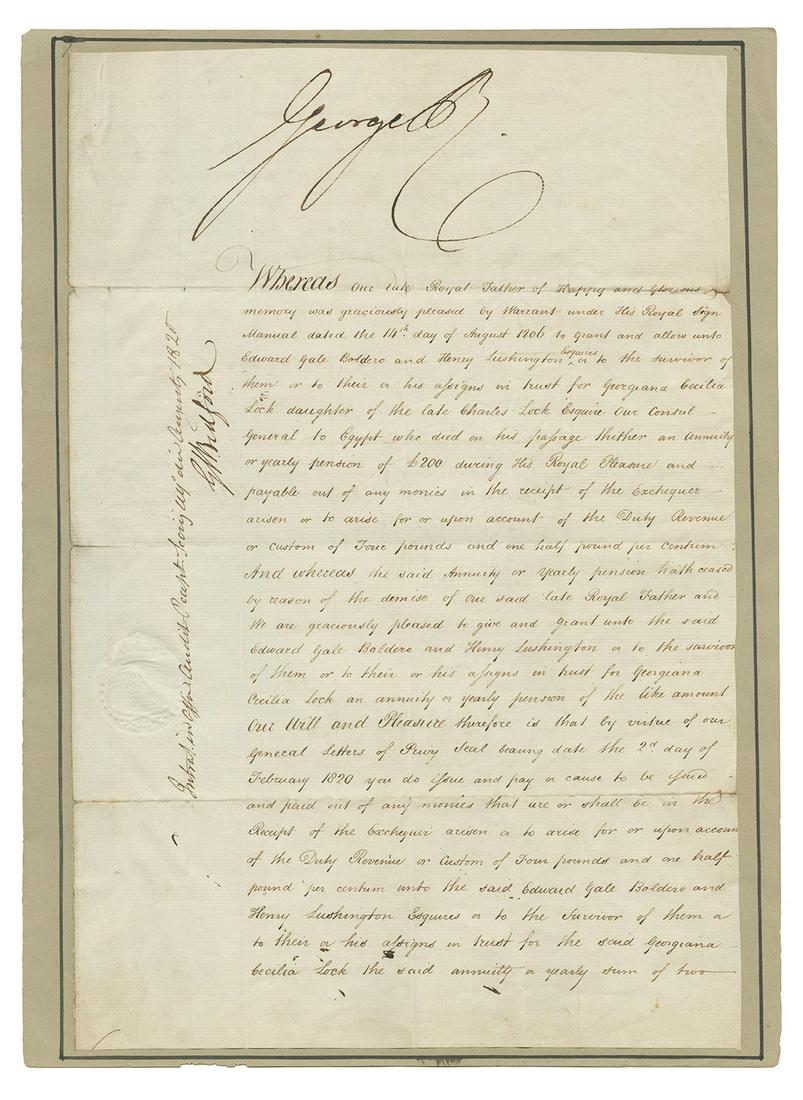 George R
Whereas Our late Royal Father of Happy and Glorious
memory was graciously pleased by Warrant under His Royal Sign
Manual dated the 14th day of August 1806 to grant and allow unto
Edward Gale Boldero and Henry Lushington Esquires or to the survivor of
them or to their or his assigns in trust for Georgiana Cecilia
Lock daughter of the late Charles Lock Esquire Our Consul
General to Egypt who died on his passage thither an Annuity
or yearly pension of £200 during His Royal Pleasure and
payable out of any monies in the receipt of the Exchequer
arisen or to arise for or upon account of the Duty Revenue
or custom of Four pounds and one half pound per Centum
And whereas the said Annuity or Yearly pension hath ceased
by reason of the demise of Our said late Royal Father and
We are graciously pleased to give and grant unto the said
Edward Gale Boldero and Henry Lushington or to the survivor
of them or to their or his assigns in trust for Georgiana
Cecilia Lock an annuity or yearly pension of the like amount
Our Will and Pleasure therefore is that by virtue of our
General Letters of Privy Seal bearing date the 2d day of
February 1820 you do issue and pay or cause to be issued
and paid out of any monies that are or shall be in the
Receipt of the Exchequer arisen or to arise for or upon account
of the Duty Revenue or Custom of Four pounds and one half
pound per centum unto the said Edward Gale Boldero and
Henry Lushington Esquires or to the Survivor of them or
to their or his assigns in trust for the said Georgiana
Cecilia Lock the said annuity or yearly sum of two
Intrat. in Offic. Audit August 1820